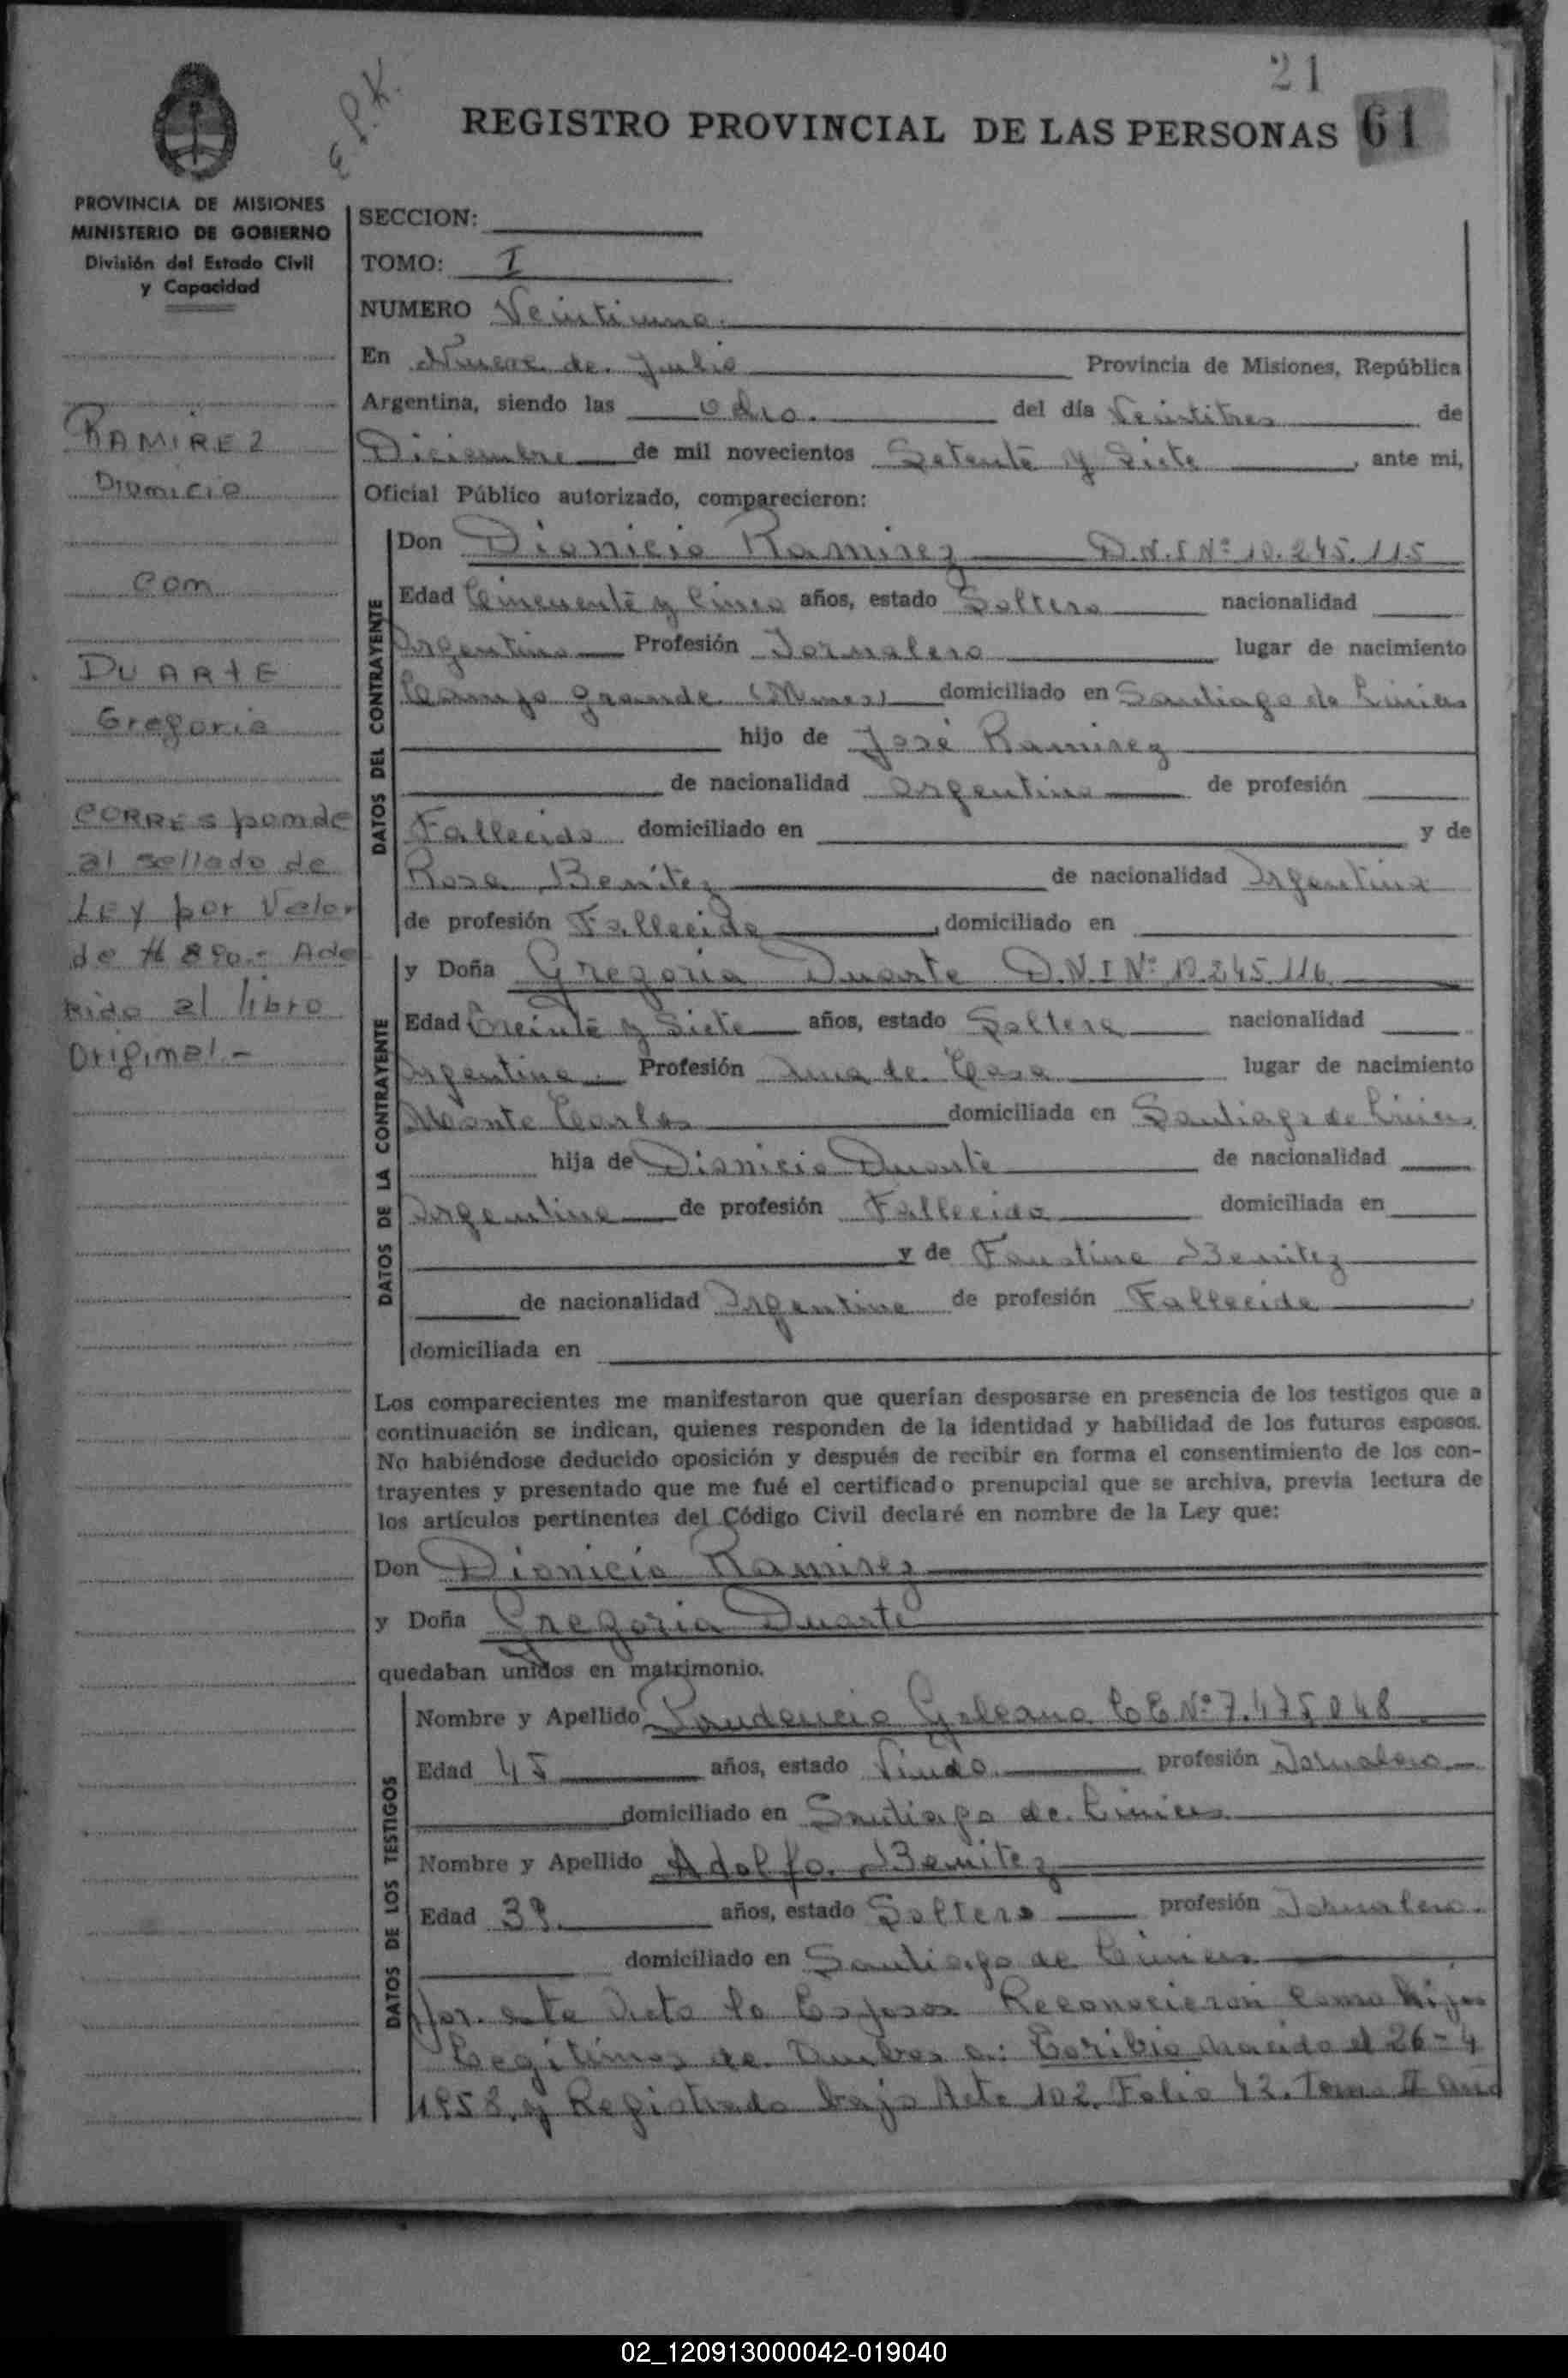 21
E.P.K.
REGISTRO PROVINCIAL DE LAS PERSONAS 61
PROVINCIA DE MISIONES
MINISTERIO DE GOBIERNO
División del Estado Civil
y Capacidad
RAMIREZ
Dionicio
con
DUARTE
Gregoria
CORRESponde
al sellado de
LEY por Valor
de $ 890.- Ade
rido al libro
Original.-
SECCION:
TOMO: I
NUMERO Veintiuno.
En Nueve de Julio Provincia de Misiones, República
Argentina, siendo las ocho. del día Veintitres de
Diciembre de mil novecientos Setenta y Siete, ante mi,
Oficial Público autorizado, comparecieron:
DATOS DEL CONTRAYENTE
Don Dionicio Ramirez D.N.I Nº 10.245.115
Edad Cincuenta y Cinco años, estado Soltero nacionalidad
Argentino Profesión Jornalero lugar de nacimiento
Campo Grande (Mnes) domiciliado en Santiago de Liniers
hijo de José Ramirez
de nacionalidad Argentino de profesión
Fallecido domiciliado en y de
Rosa Benítez de nacionalidad Argentina
de profesión Fallecida, domiciliado en
DATOS DE LA CONTRAYENTE
y Doña Gregoria Duarte D.N.I Nº 10.245.116
Edad Treinta y Siete años, estado Soltera nacionalidad
Argentina. Profesión Ama de Casa lugar de nacimiento
Monte Carlos domiciliada en Santiago de Liniers
hija de Dionicio Duarte de nacionalidad
Argentino de profesión Fallecido domiciliada en
y de Faustina Benitez
de nacionalidad Argentina de profesión Fallecida
domiciliada en
Los comparecientes me manifestaron que querían desposarse en presencia de los testigos que a
continuación se indican, quienes responden de la identidad y habilidad de los futuros esposos.
No habiéndose deducido oposición y después de recibir en forma el consentimiento de los con-
trayentes y presentado que me fué el certificado prenupcial que se archiva, previa lectura de
los artículos pertinentes del Código Civil declaré en nombre de la Ley que:
Don Dionicio Ramirez
y Doña Gregoria Duarte
quedaban unidos en matrimonio.
DATOS DE LOS TESTIGOS
Nombre y Apellido Prudencio Galeano Nº 7.475.048
Edad 45 años, estado Viudo. profesión Jornalero
domiciliado en Santiago de Liniers
Nombre y Apellido Adolfo Benitez
Edad 39. años, estado Soltero profesión Jornalero.
domiciliado en Santiago de Liniers
Por este Acto lo Esposos Reconocieron como hijos
Legítimos de Ambos a: Toribio nacido el 26-4
1958, y Registrado bajo Acta 102. Folio 42. Tomo II Año
02_120913000042-019040